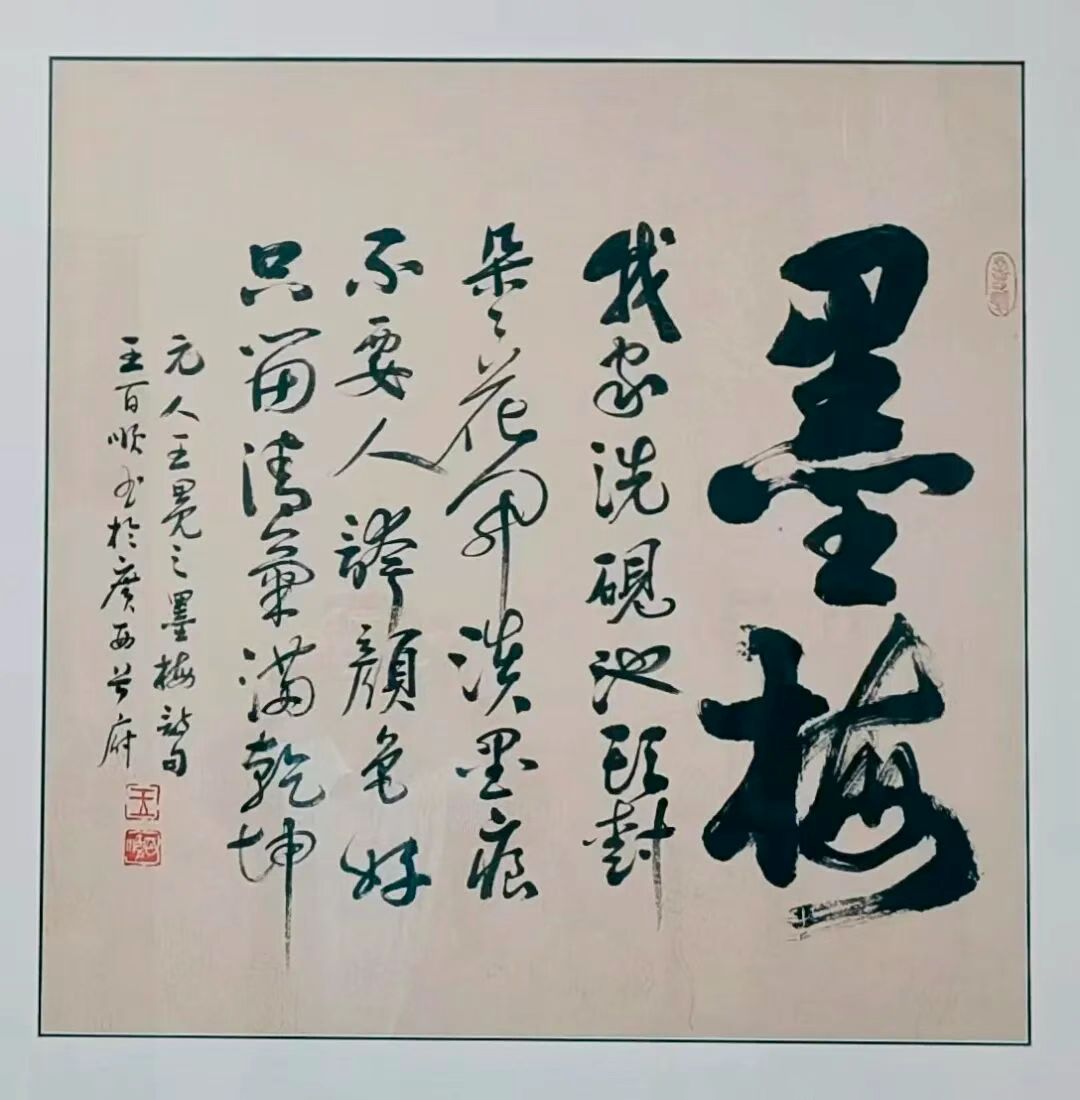 墨梅
我家洗硯池頭樹
朵々花開淡墨痕
不要人誇顏色好
只留清氣滿乾坤
元人王冕之墨梅詩句
王百順書於廣西首府
王